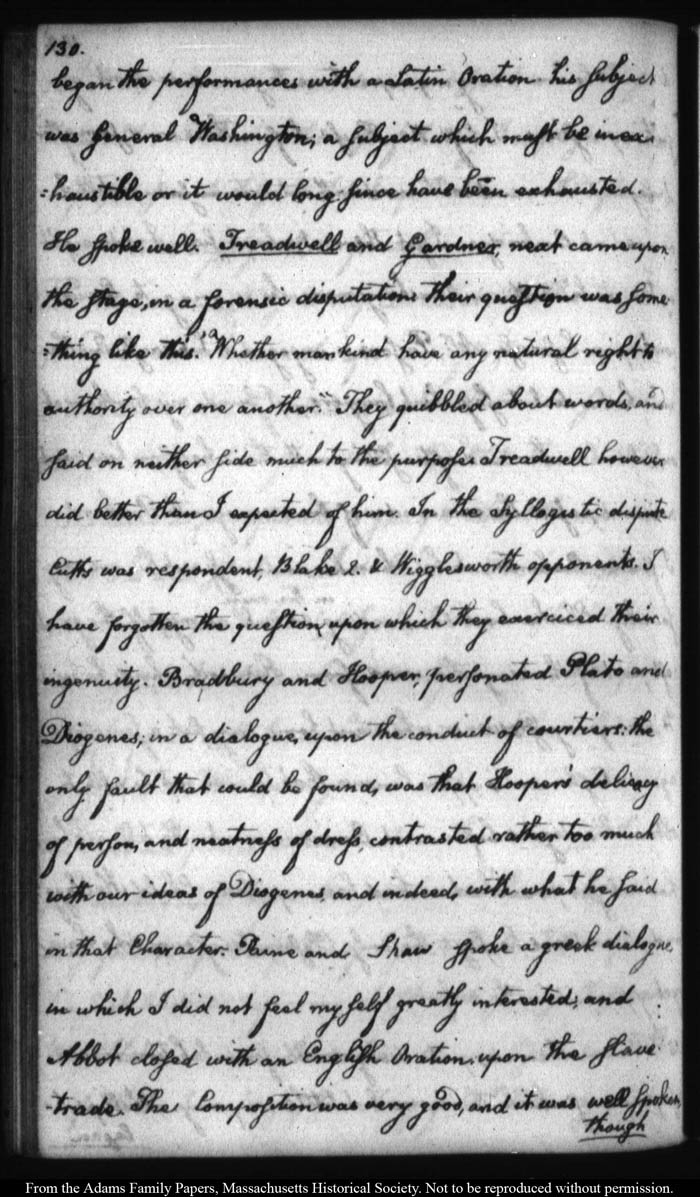 130.
began the performances with a Latin Oration his subject
was General Washington; a subject which must be inex-
=haustible or it would long since have been exhausted.
He spoke well. Treadwell and Gardner, next came upon
the stage, in a forensic disputation: their question was some
=thing like this. "Whether mankind have any natural right to
authority over one another." They quibbled about words, and
said on neither side much to the purpose. Treadwell however
did better than I expected of him. In the Syllogistic dispute
Cutts was respondent, Blake 2. & Wigglesworth opponents. I
have forgotten the question, upon which they exercised their
ingenuity. Bradbury and Hooper, personated Plato and
Diogenes; in a dialogue, upon the conduct of courtiers: the
only fault that could be found, was that Hooper's delicacy
of person, and neatness of dress, contrasted rather too much
with our ideas of Diogenes, and indeed, with what he said
in that Character. Paine and Shaw spoke a greek dialogue,
in which I did not feel myself greatly interested; and
Abbot closed with an English Oration, upon the slave-
-trade. The Composition was very good, and it was well spoken,
though
From the Adams Family Papers, Massachusetts Historical Society. Not to be reproduced without permission.